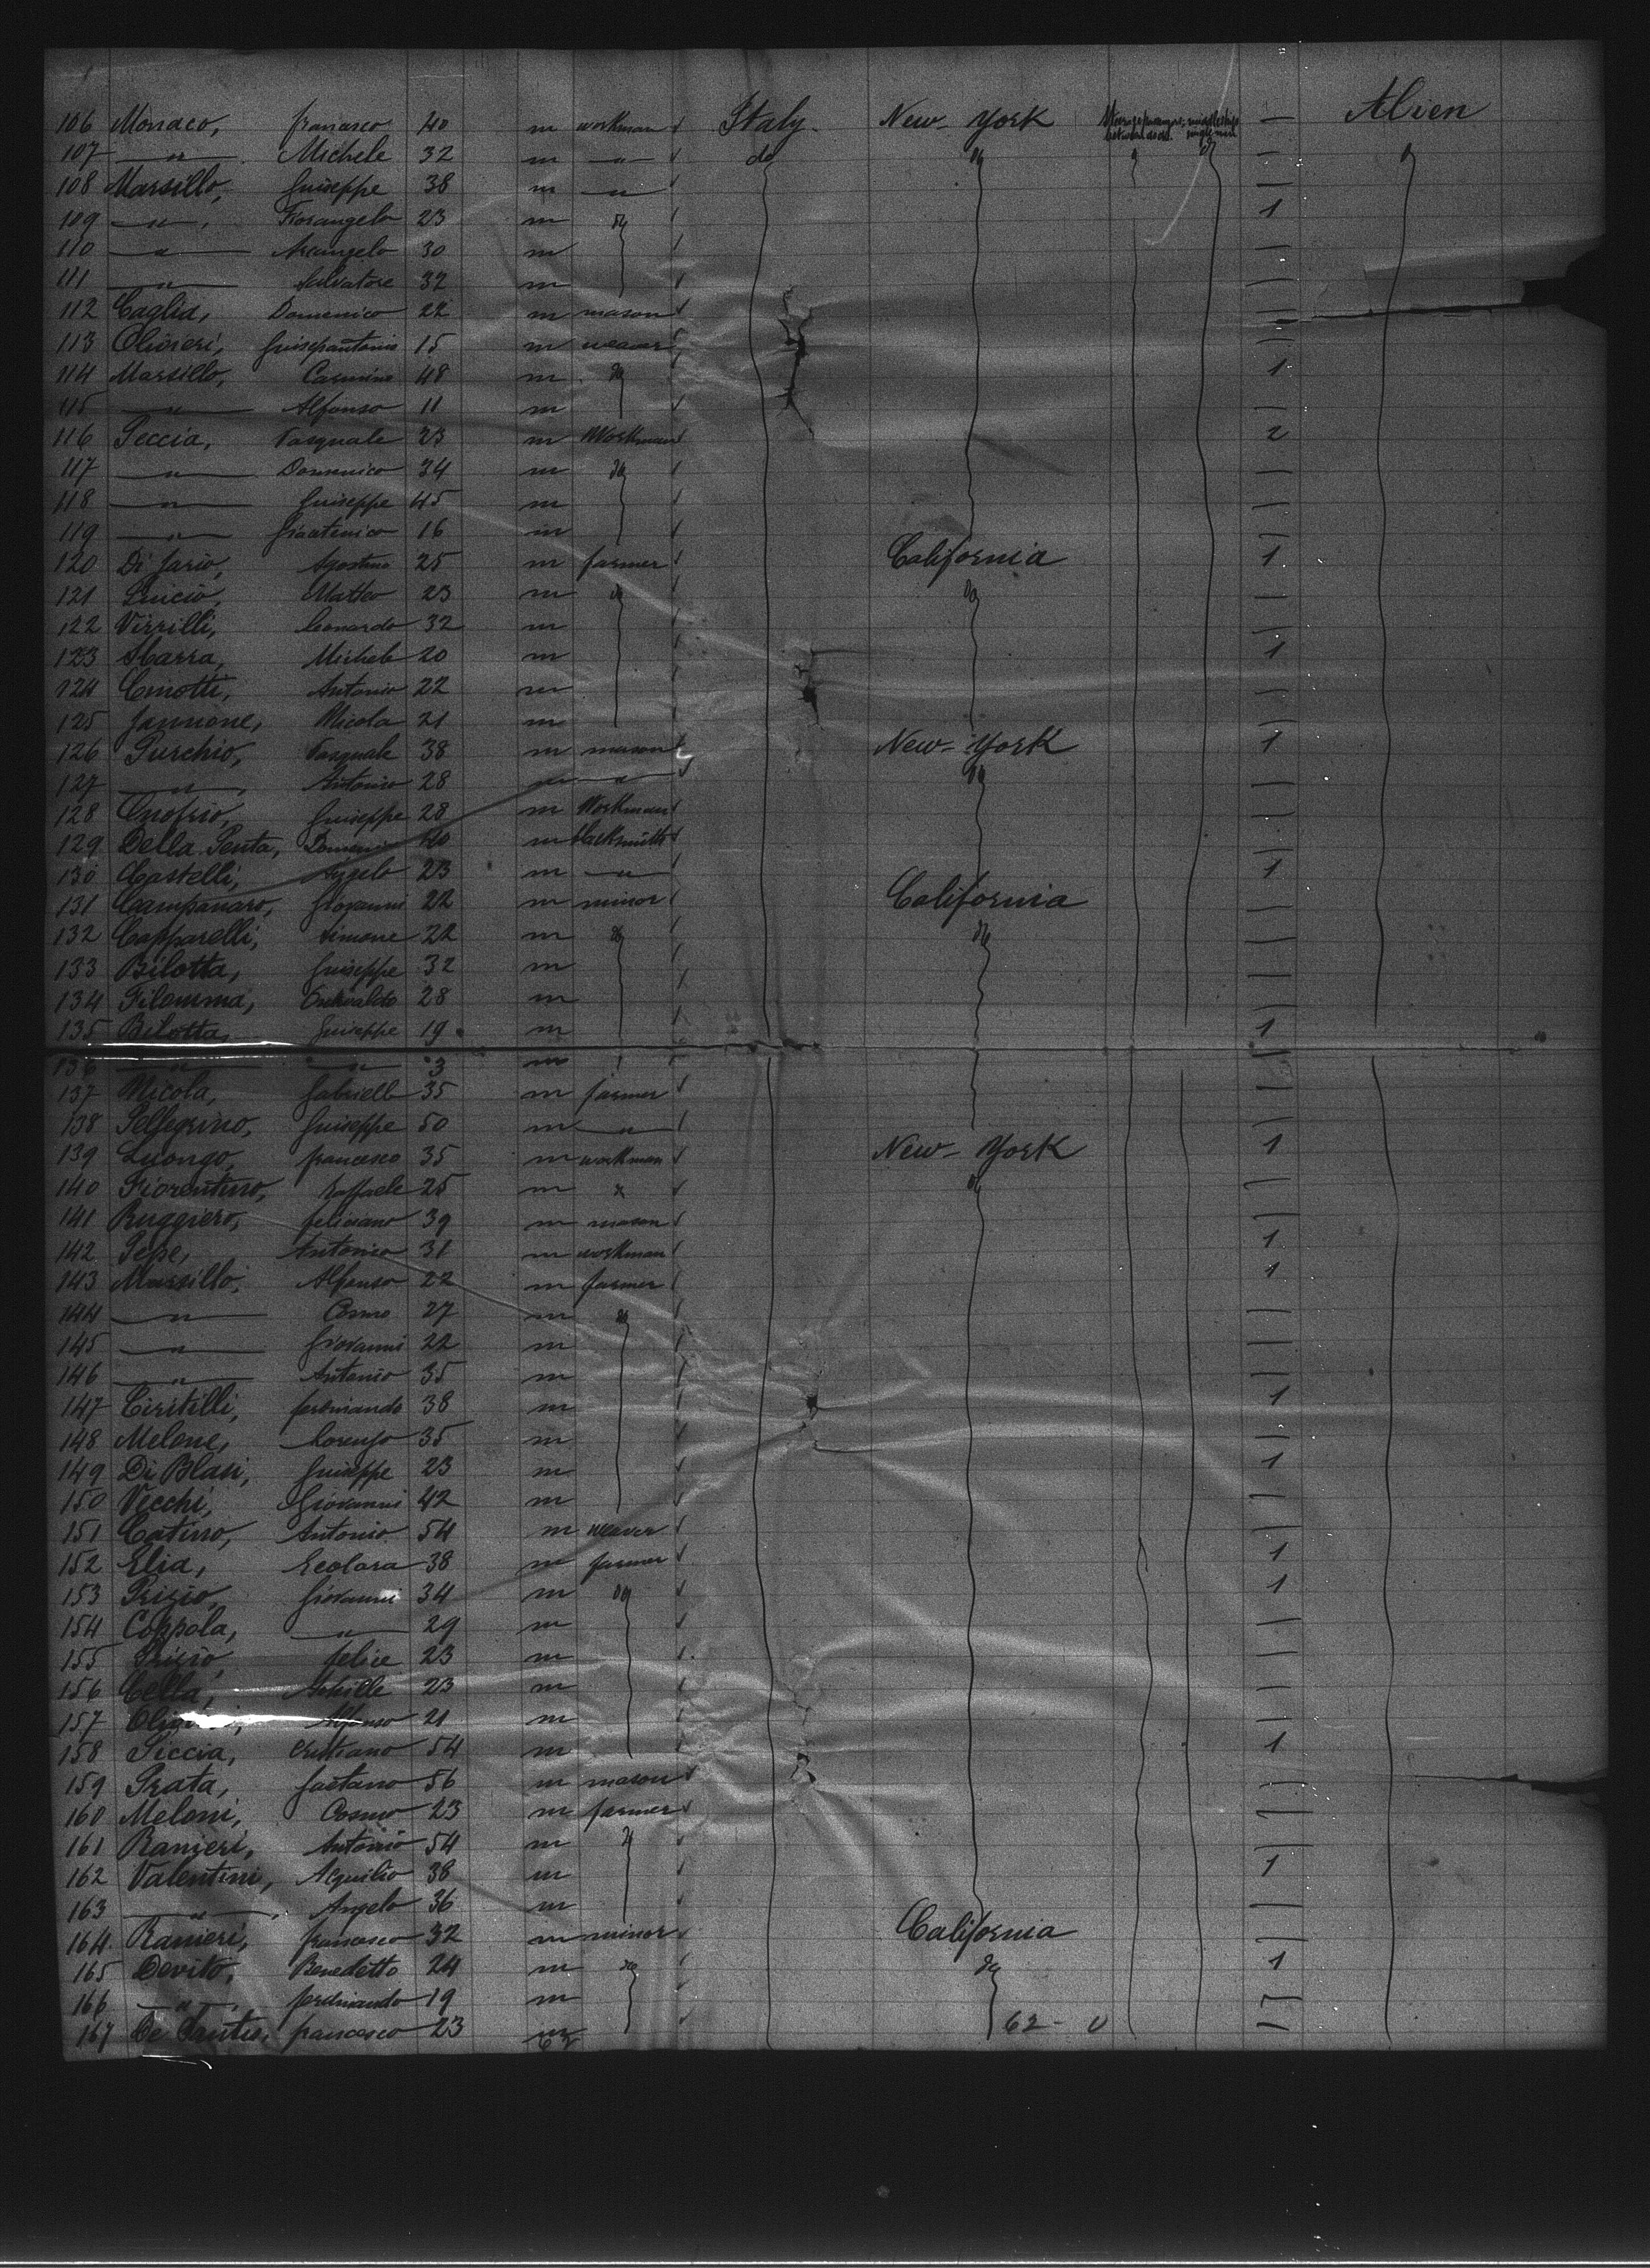 106 Monaco, francesco 40 m workman Italy. New-York — Alien
107 —"— Michele 32 m —"— do do —
108 Marsillo, Guiseppe 38 m —"— —
109 —"—, Fiorangelo 23 m do 1
110 —"— Arcangelo 30 m —
111 —"— Salvatore 32 m —
112 Caglia, Domenico 22 m mason —
113 Olivieri, Guisepantonio 15 m weaver —
114 Marsillo, Carmine 48 m do 1
115 —"— Alfonso 11 m —
116 Peccia, Pasquale 23 m Workman 2
117 —"— Domenico 34 m do —
118 —"— Guiseppe 45 m —
119 —"— 16 m —
120 Di Jario, Agostino 25 m farmer California 1
121 Matteo 23 m do do —
122 Virrilli, Leonardo 32 m —
123 Sbarra, Michele 20 m 1
124 Antonio 22 m —
125 Jannone, Nicola 21 m 1
126 Purchio, Pasquale 38 m mason New-York 1
127 —"—, Antonio 28 m —"— do —
128 Onofrio, Guiseppe 28 m Workman —
129 Della Penta, Domenico 40 m blacksmith —
130 Castelli, Angelo 23 m —"— 1
131 Campanaro, Giovanni 22 m minor California —
132 Capparelli, Simone 22 m do do —
133 Bilotta, Guiseppe 32 m —
134 Filomma, 28 m —
135 Bilotta, Guiseppe 19 m 1
136 —"— —"— 3 m —
137 Nicola, Gabrielle 35 m farmer —
138 Pellegrino, Guiseppe 50 m —"— —
139 Luongo, francesco 35 m workman New-York 1
140 Fiorentino, Raffaele 25 m do —
141 Ruggiero, feliciano 39 m mason —
142 Pepe, Antonio 31 m workman 1
143 Marsillo, Alfonso 22 m farmer 1
144 —"— Cosmo 27 m do —
145 —"— Giovanni 22 m —
146 —"— Antonio 35 m —
147 Ciritilli, ferdinando 38 m 1
148 Melone, Lorenzo 35 m —
149 Di Blasi, Guiseppe 23 m 1
150 Vecchi, Giovanni 42 m —
151 Catino, Antonio 54 m weaver —
152 Elia, 38 m farmer 1
153 Prizio, Giovanni 34 m do 1
154 Coppola, —"— 29 m —
155 Prizio, felice 23 m —
156 Cella, Achille 23 m —
157 Alfonso 21 m —
158 Piccia, Cristiano 54 m 1
159 Prata, Gaetano 56 m mason —
160 Meloni, Cosmo 23 m farmer —
161 Ranieri, Antonio 54 m do —
162 Valentini, Acquilio 38 m 1
163 —"—, Angelo 36 m —
164 Ranieri, francesco 32 m minor California —
165 Devito, Benedetto 24 m do do 1
166 —"—, ferdinando 19 m —
167 De Santis, francesco 23 m 62- 0 —